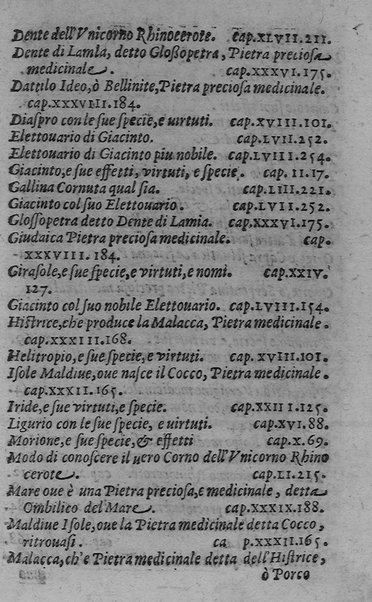 Dente dell'Vnicorno Rhinocerote. cap.XLVII.211.
Dente di Lamla, detto Gloßopetra, Pietra preciosa
medicinale. cap.XXXVI.175.
Dattilo Ideo, ò Bellinite, Pietra preciosa medicinale.
cap.XXXVIII.184.
Diaspro con le sue specie, e uirtuti. cap.XVIII.101.
Elettouario di Giacinto. cap.LVII.252.
Elettouario di Giacinto piu nobile. cap.LVIII.254.
Giacinto, e sue effetti, virtuti, e specie. cap.II.17.
Gallina Cornuta qual sia. cap.LIII.221.
Giacinto col suo Elettouario. cap.LVII.252.
Glossopetra detto Dente di Lamia. cap.XXXVI.175.
Giudaica Pietra preciosa medicinale. cap.
XXXVIII.184.
Girasole, e sue specie, e virtuti, e nomi. cap.XXIV.
127.
Giacinto col suo nobile Elettouario. cap.LVIII.154.
Histrice, che produce la Malacca, Pietra medicinale.
cap.XXXIII.168.
Helitropio, e sue specie, e virtuti. cap.XVIII.101.
Isole Maldiue, oue nasce il Cocco, Pietra medicinale.
cap.XXXII.165.
Iride, e sue virtuti, e specie. cap.XXIII.125.
Ligurio con le sue specie, e uirtuti. cap.XVI.88.
Morione, e sue specie, & effetti cap.X.69.
Modo di conoscere il uero Corno dell'Vnicorno Rhino
cerote. cap.LI.215.
Mare oue è una Pietra preciosa, e medicinale, detta
Ombilico del Mare cap.XXXIX.188.
Maldiue Isole, oue la Pietra medicinale detta Cocco,
ritrouasi. ca p.XXXII.165.
Malacca, ch'e Pietra medicinale detta dell'Histrice,
ò Porco